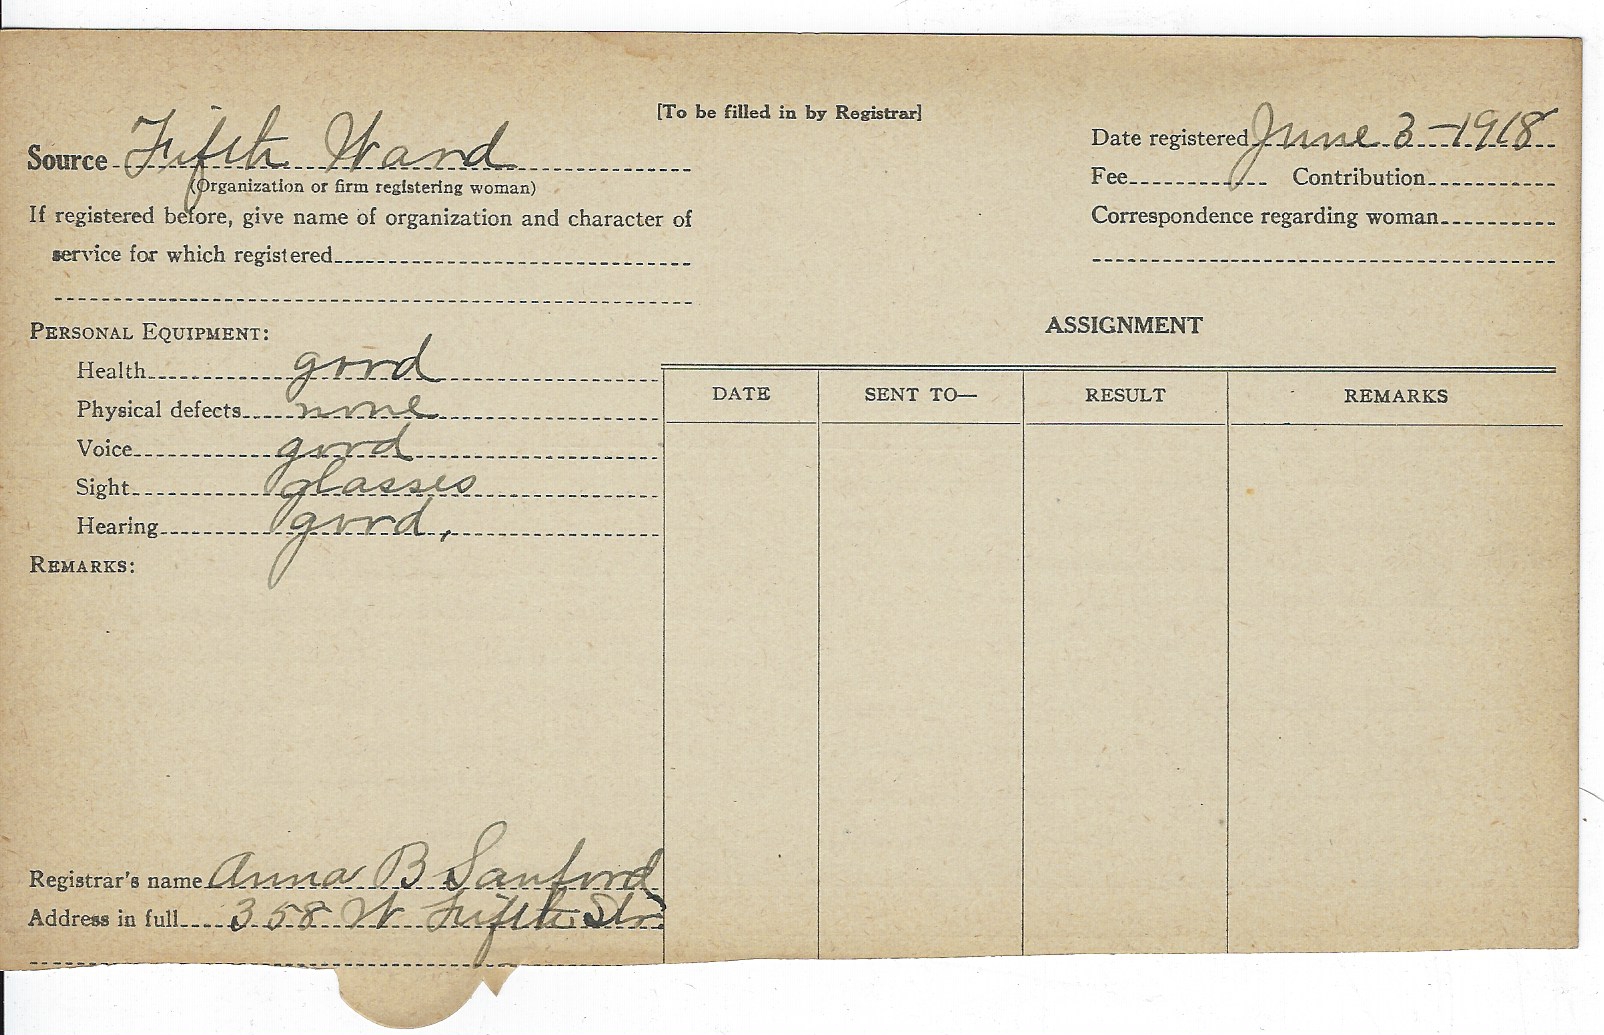 [To be filled in by Registrar]
Source Fifth Ward
(Organization or firm registering woman)
If registered before, give name of organization and character of
service for which registered
Date registered June 3-1918
Fee Contribution
Correspondence regarding woman
PERSONAL EQUIPMENT:
Health good
Physical defects none
Voice good
Sight glasses
Hearing good,
REMARKS:
ASSIGNMENT
DATE SENT TO— RESULT REMARKS
Registrar's name Anna B Sanford
Address in full 358 W Fifth Str.